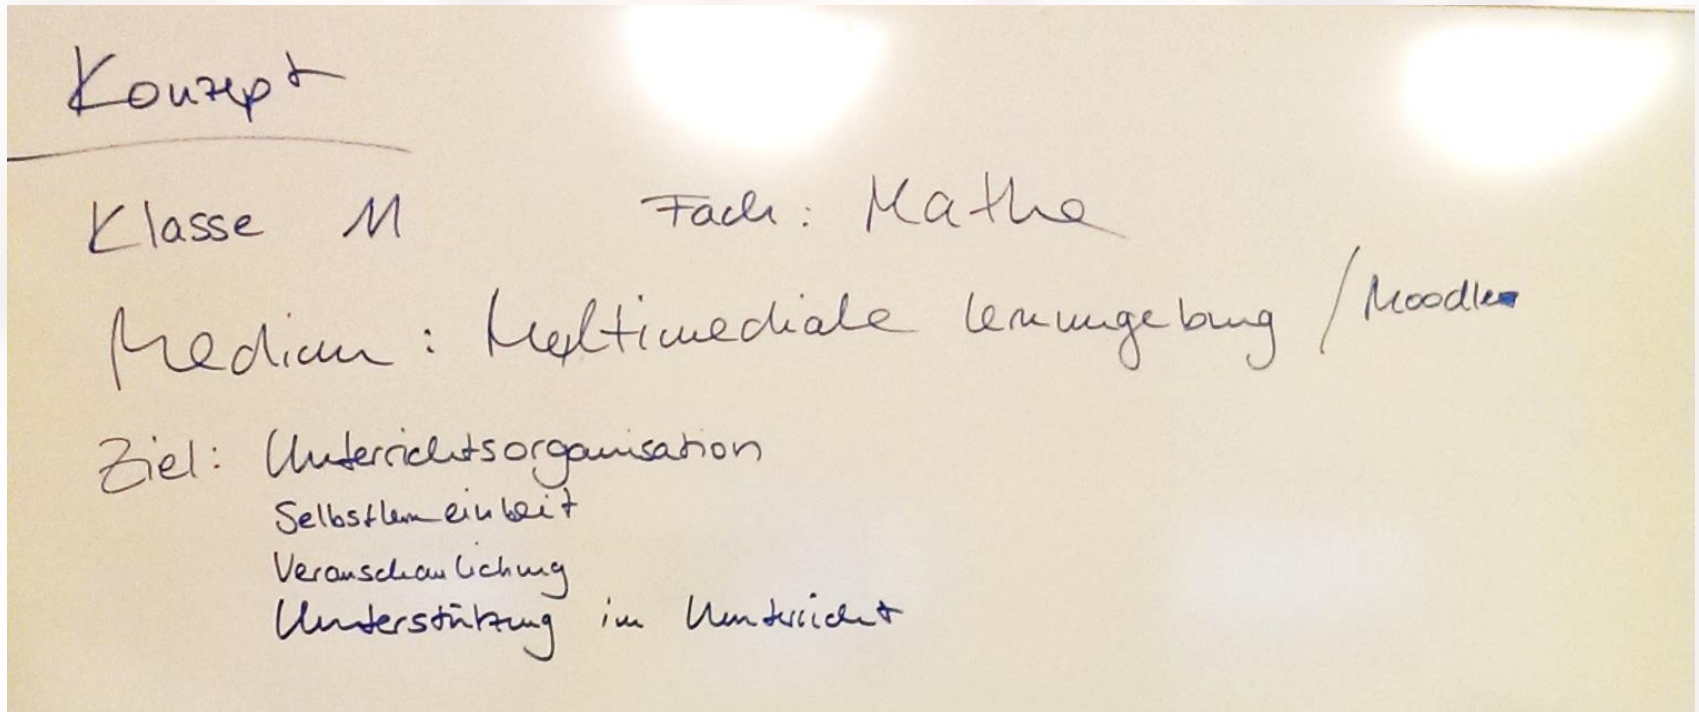 Konzept
Klasse 11 Fach: Mathe
Medium: Multimediale Lernumgebung / Moodle
Ziel: Unterrichtsorganisation
Selbstlerneinheit
Veranschaulichung
Unterstützung im Unterricht